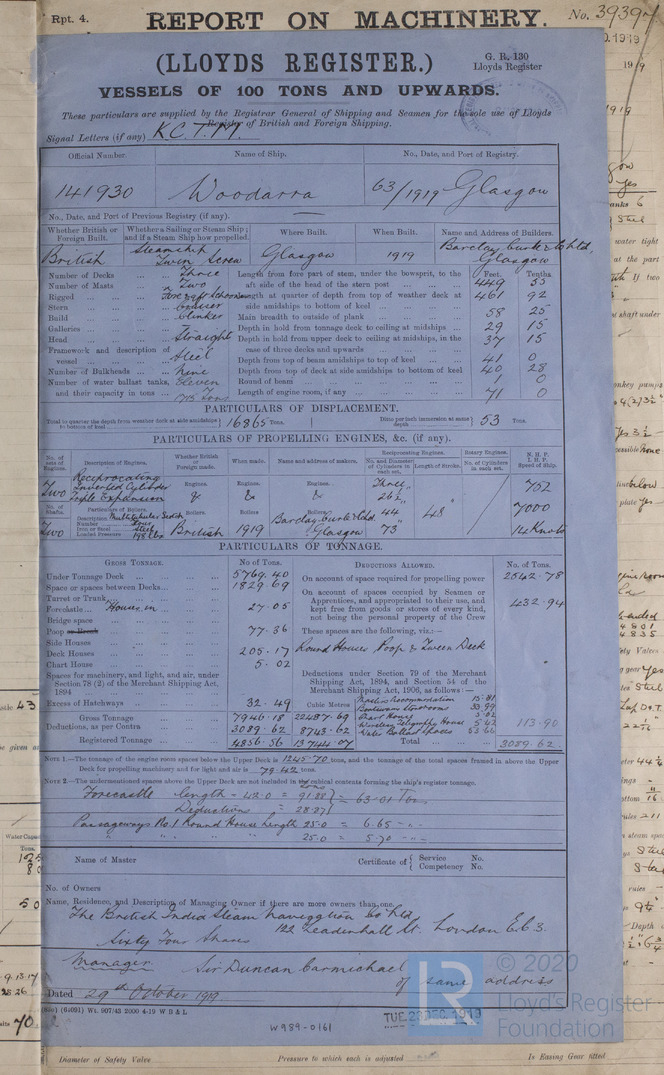 Rpt. 4. REPORT ON MACHINERY. No. 3939
(LLOYDS REGISTER.) G. R. 130
Lloyds Register
VESSELS OF 100 TONS AND UPWARDS.
These particulars are supplied by the Registrar General of Shipping and Seamen for the sole use of Lloyds
Register of British and Foreign Shipping.
Signal Letters (if any) K.C.T.M.
Official Number. Name of Ship. No., Date, and Port of Registry.
141930 Woodarra 63/1919 Glasgow
No., Date, and Port of Previous Registry (if any). —
Whether British or Foreign Built. Whether a Sailing or Steam Ship; and if a Steam Ship how propelled. Where Built. When Built. Name and Address of Builders.
British Steamship Twin Screw Glasgow 1919 Barclay Curle & Co Ltd. Glasgow
Number of Decks Three
Number of Masts Two
Rigged Fore & aft schooner
Stern
Build Clinker
Galleries
Head Straight
Framework and description of vessel Steel
Number of Bulkheads Nine
Number of water ballast tanks, and their capacity in tons Eleven 1715 Tons
Feet. Tenths.
Length from fore part of stem, under the bowsprit, to the aft side of the head of the stern post 449 55
Length at quarter of depth from top of weather deck at side amidships to bottom of keel 461 92
Main breadth to outside of plank 58 25
Depth in hold from tonnage deck to ceiling at midships 29 15
Depth in hold from upper deck to ceiling at midships, in the case of three decks and upwards 37 15
Depth from top of beam amidships to top of keel 41 0
Depth from top of deck at side amidships to bottom of keel 40 28
Round of beam 1 0
Length of engine room, if any 71 0
PARTICULARS OF DISPLACEMENT.
Total to quarter the depth from weather deck at side amidships to bottom of keel 16865 Tons. Ditto per inch immersion at same depth 53 Tons.
PARTICULARS OF PROPELLING ENGINES, &c. (if any).
No. of sets of Engines. Description of Engines. Whether British or Foreign made. When made. Name and address of makers. Reciprocating Engines. No. and Diameter of Cylinders in each set. Length of Stroke. Rotary Engines. No. of Cylinders in each set. N. H. P. I. H. P. Speed of Ship.
Two Reciprocating Inverted Cylinder Triple Expansion Engines. & Engines. & Engines. & Three 26½" 44 73" 48" 752 7000 14 Knots
No. of Shafts. Particulars of Boilers.
Two Description Multitubular Scotch
Number Four
Iron or Steel Steel
Loaded Pressure 198 lbs
Boilers. British Boilers 1919 Boilers Barclay Curle & Co Ltd. Glasgow
PARTICULARS OF TONNAGE.
GROSS TONNAGE. No. of Tons.
Under Tonnage Deck 5769.40
Space or spaces between Decks 1829.69
Turret or Trunk
Forecastle Houses in 27.05
Bridge space
Poop or Break 77.36
Side Houses
Deck Houses 205.17
Chart House 5.02
Spaces for machinery, and light, and air, under Section 78 (2) of the Merchant Shipping Act, 1894
Excess of Hatchways 32.49
Cubic Metres
Gross Tonnage 7946.18 22487.69
Deductions, as per Contra 3089.62 8743.62
Registered Tonnage 4856.56 13744.07
DEDUCTIONS ALLOWED. No. of Tons.
On account of space required for propelling power 2542.78
On account of spaces occupied by Seamen or Apprentices, and appropriated to their use, and kept free from goods or stores of every kind, not being the personal property of the Crew 432.94
These spaces are the following, viz.:—
Round House Poop & Tween Deck
Deductions under Section 79 of the Merchant Shipping Act, 1894, and Section 54 of the Merchant Shipping Act, 1906, as follows:—
Master's Accommodation 15.81
Boatswain Storeroom 33.99
Chart House 5.02
Wireless Telegraphy House 5.42
Water Ballast spaces 53.66
113.90
Total 3089.62
NOTE 1.—The tonnage of the engine room spaces below the Upper Deck is 1245.70 tons, and the tonnage of the total spaces framed in above the Upper
Deck for propelling machinery and for light and air is 79.42 tons.
NOTE 2.—The undermentioned spaces above the Upper Deck are not included in the cubical contents forming the ship's register tonnage.
Forecastle length = 42.0 = 91.88 } = 63.01 Tons
Deductions = 28.87
Passageways No. 1 Round House length 25.0 = 6.65
25.0 = 5.70
Name of Master Certificate of { Service No. Competency No.
No. of Owners
Name, Residence, and Description of Managing Owner if there are more owners than one.
The British India Steam Navigation Co Ltd
122 Leadenhall St. London E.C.3.
Sixty Four Shares
Manager Sir Duncan Carmichael
of same address
Dated 29th October 1919.
(62091) Wt. 907/43 2000 4-19 W B & L
TUE. 1919
W989-0161
LR
© 2020
Lloyd's Register
Foundation
Diameter of Safety Valve Pressure to which each is adjusted Is Easing Gear fitted